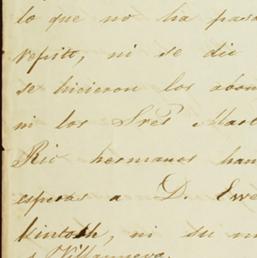 lo que no ha pasa
repito, ni se dic
se hicieron los abon
ni los Sres Mart
Rio hermanos han
esperas a D. Ewe
kintosh, ni su m
Villanueva.